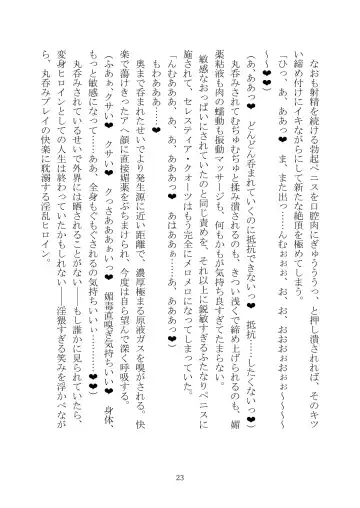 なおも射精を続ける勃起ペニスを口腔肉にぎゅうううっ、と押し潰されれば、そのキツ
い締め付けにイキながらにして新たな絶頂を極めてしまう。
「ひっ、あ、ああっ❤　ま、また出っ……んむぉぉぉ、お、お、おおおぉおぉぉ～～～～
～❤❤」
（あ、ああっ❤　どんどん呑まれていくのに抵抗できないっ❤　抵抗……したくないっ❤）
　丸呑みされてむぢゅむぢゅと揉み潰されるのも、きつい浅くで締め上げられるのも、媚
薬粘液も肉の蠕動も振動マッサージも、何もかもが気持ち良すぎてたまらない。
　敏感なおっぱいにされていたのと同じ責めを、それ以上に鋭敏すぎるふたなりペニスに
施されて、セレスティア・クォーツはもう完全にメロメロになってしまっていた。
「んむああああ、あ、ああ、あ、あああっ❤　あはああぁ……あ、あああっ❤
もわあああ❤」
　奥まで呑まれたせいでより発生源に近い距離で、濃厚極まる原液ガスを嗅がされる。快
楽で蕩けきったアヘ顔に直接媚薬をぶちまけられ、今度は自ら望んで深く呼吸する。
（ふあぁ❤クサい❤　クっさああああぁいっ❤　媚毒直嗅ぎ気持ちいい❤　身体、
もっと敏感になって……ああ、全身もぐもぐされるの気持ちいいぃ……❤❤）
　丸呑みされているせいで外界には晒されることがない――もし誰かに見られていたら、
変身ヒロインとしての人生は終わっていたかもしれない――淫猥すぎる笑みを浮かべなが
ら、丸呑みプレイの快楽に耽溺する淫乱ヒロイン。
23